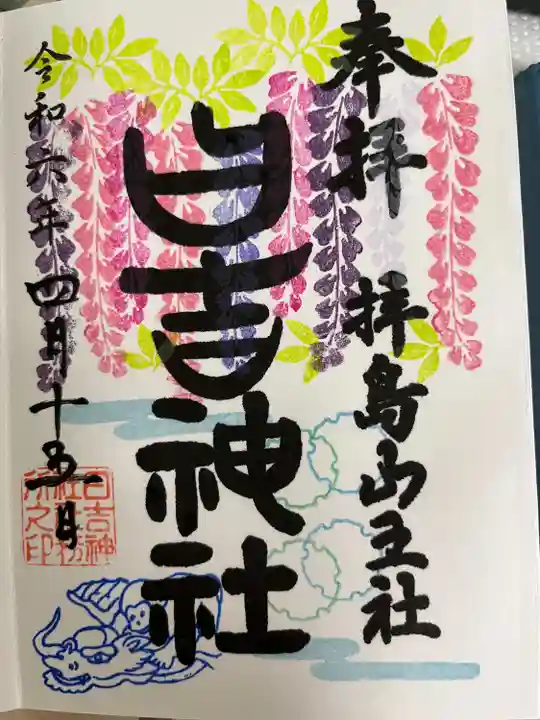 奉拝 拝島山王社
日吉神社
令和六年四月十五日
日吉神
社社務
所之印